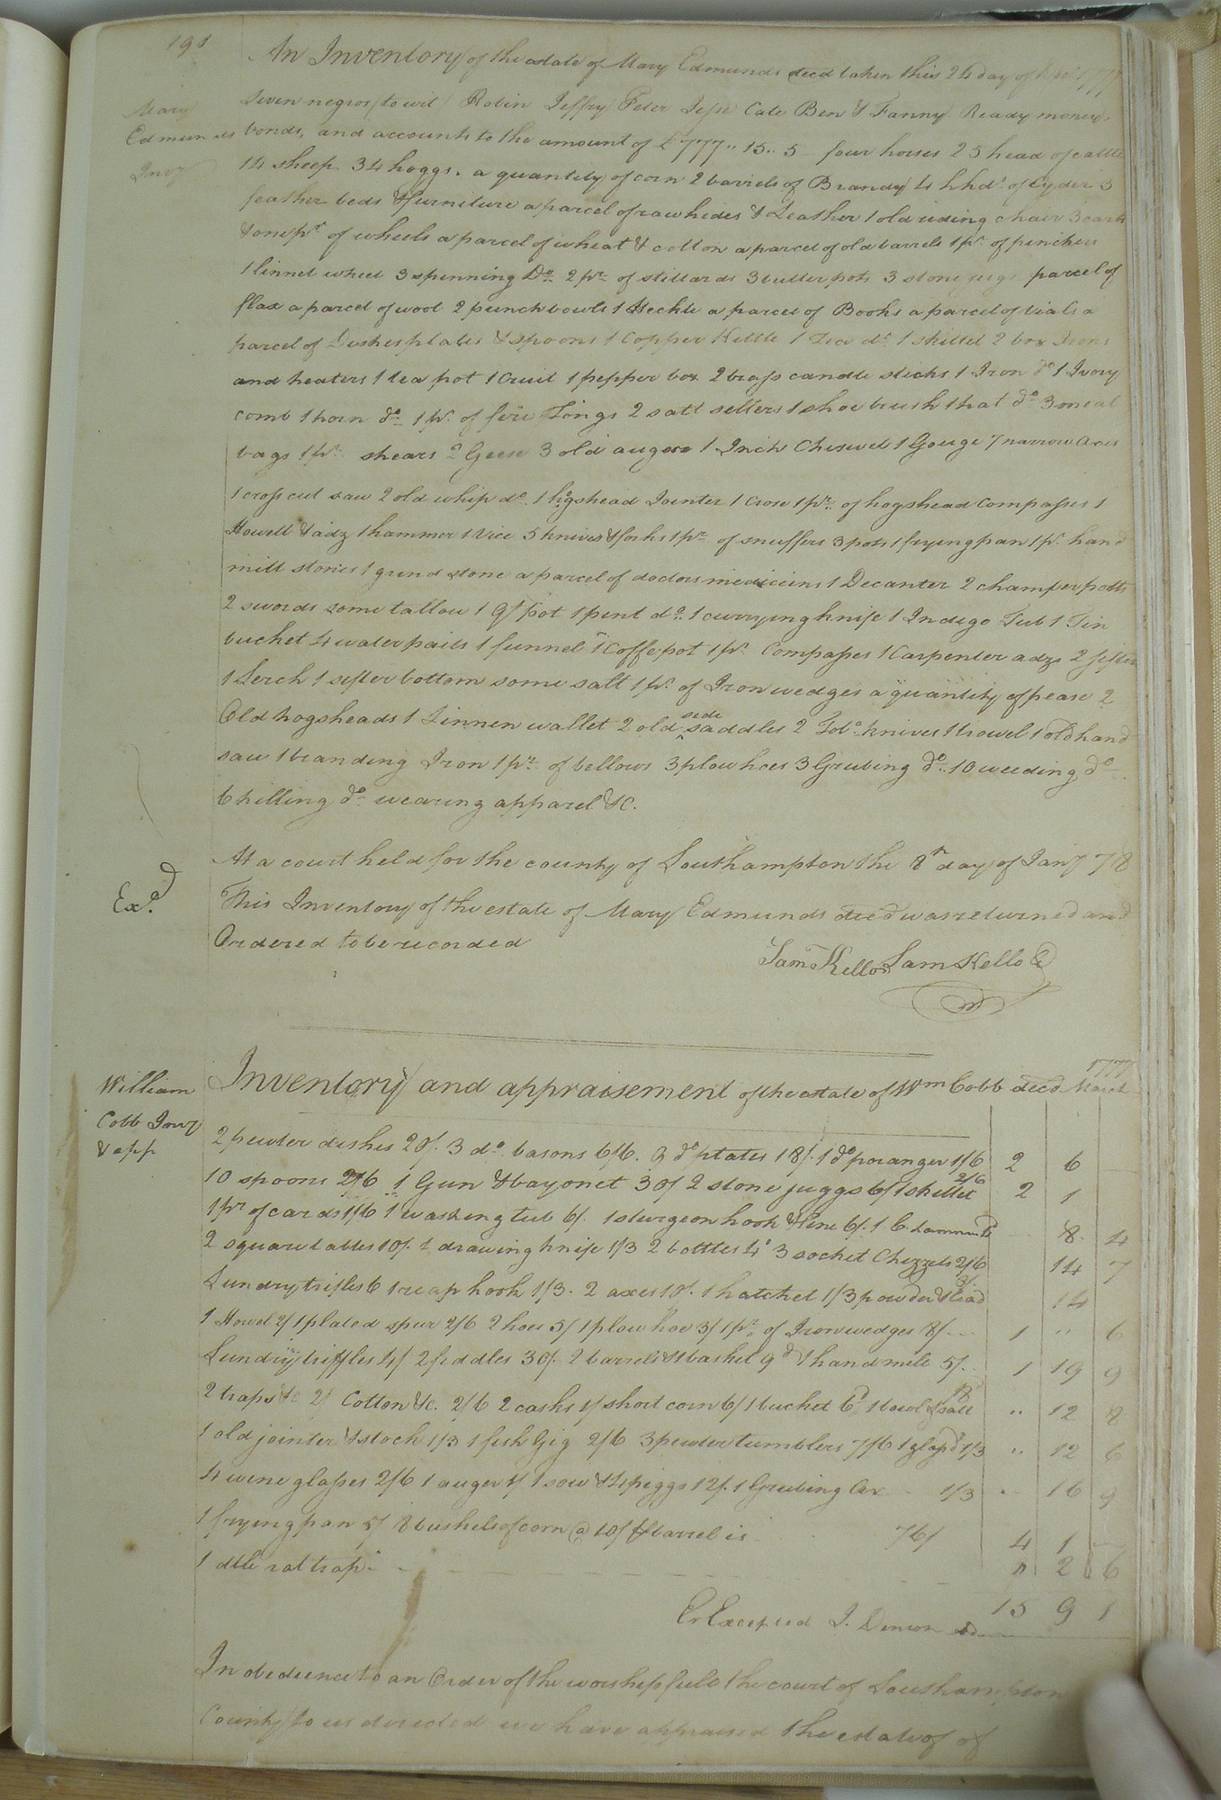 191
An Inventory of the estate of Mary Edmunds decd taken this 24 day of 1777
Mary Edmunds Invy
Seven negros (to wit) Robin Jeffry Peter Jesse Cate Ben & Fanny Ready money,
bonds, and accounts to the amount of £777..15..5 four horses 25 head of cattle
14 sheep 34 hoggs. a quantity of corn 2 barrels of Brandy 4 hhds. of Cyder 3
feather beds & furniture a parcel of raw hides & Leather 1 old riding chair 3 cards
& one pr. of wheels a parcel of wheat & cotton a parcel of old barrels 1 pr. of pinchers
1 linnet wheel 3 spinning Do. 2 pr. of stillards 3 butter pots 3 stone jugs parcel of
flax a parcel of wool 2 punch bowls 1 Heckle a parcel of Books a parcel of vials a
parcel of Dishes plates & spoons 1 Copper Kettle 1 Tea do. 1 skillet 2 box Irons
and heaters 1 tea pot 1 Cruit 1 pepper box 2 brass candle sticks 1 Iron do 1 Ivory
comb 1 horn do. 1 pr. of fire Tongs 2 salt sellers 1 shoe brush 1 hat do. 3 meal
bags 1 pr. shears 2 Geese 3 old augers 1 Inch Cheswel 1 Gouge 7 narrow axes
1 cross cut saw 2 old whip do. 1 hogshead Jointer 1 Crose 1 pr. of hogshead Compasses 1
Howell & adz 1 hammer 1 Vice 5 knives & forks 1 pr. of snuffers 3 pots 1 frying pan 1 pr. hand
mill stones 1 grind stone a parcel of doctors medicins 1 Decanter 2 chamber potts
2 swords some tallow 1 qt. pot 1 pint do. 1 currying knife 1 Indigo Tub 1 Tin
bucket 4 water pails 1 funnel 1 Coffe pot 1 pr. Compasses 1 Carpenter adze 2 sifters
1 Serch 1 sifter bottom some salt 1 pr. of Iron wedges a quantity of pease 2
Old hogsheads 1 Linnen wallet 2 old side saddles 2 Tobo. knives 1 trowel 1 old hand
saw 1 branding Iron 1 pr. of bellows 3 plow hoes 3 Grubing do. 10 weeding do.
6 hilling do. wearing apparel &c.
At a court held for the county of Southampton the 8th day of Jany 78
Exd.
This Inventory of the estate of Mary Edmunds decd was returned and
Ordered to be recorded
Saml Kello Sam Kello C
William Cobb Invy & app
Inventory and appraisement of the estate of Wm Cobb decd March 1777
2 pewter dishes 20/. 3 do. basons 6/6. 9 do plates 18/. 1 do poranger 1/6 2 6
10 spoons 2/6 1 Gun & bayonet 30/ 2 stone juggs 6/ 1 skillet 2/6 2 1
1 pr of cards 1/6 1 washing tub 6/. 1 sturgeon hook & line 6/. 1 8 4
2 square tables 10/. 1 drawing knife 1/3 2 bottles 4d 3 socket Chezzels 2/6 14 7
Sundry trifles 6 1 reap hook 1/3. 2 axes 10/. 1 hatchet 1/3 powder & lead 3/. 14
1 Howel 2/ 1 plated spur 2/6 2 hoes 5/ 1 plow hoe 3/ 1 pr. of Iron wedges 8/ 1 " 6
Sundry triffles 4/ 2 fiddles 30/. 2 barrels & basket 9d 1 hand mill 5/. 1 19 9
2 traps &c 2/ Cotton &c. 2/6 2 casks 1/ short corn 6/ 1 bucket 6d 1 bowl & salt " 12 8
1 old jointer & stock 1/3 1 fish Gig 2/6 3 pewter tumblers 7/6 1 glass do 1/3 " 12 6
4 wine glasses 2/6 1 auger 1/ 1 sow & 4 piggs 12/. 1 Grubing Ax 1/3 " 16 9
1 frying pan 5/ bushels of corn @ 10/ barrel is 76/ 4 1
1 dble rat trap. " 2 6
Er Excepted J. Denson 15 9 1
In obedience to an Order of the worshipfull the court of Southampton
County to us directed we have appraised the estate of of